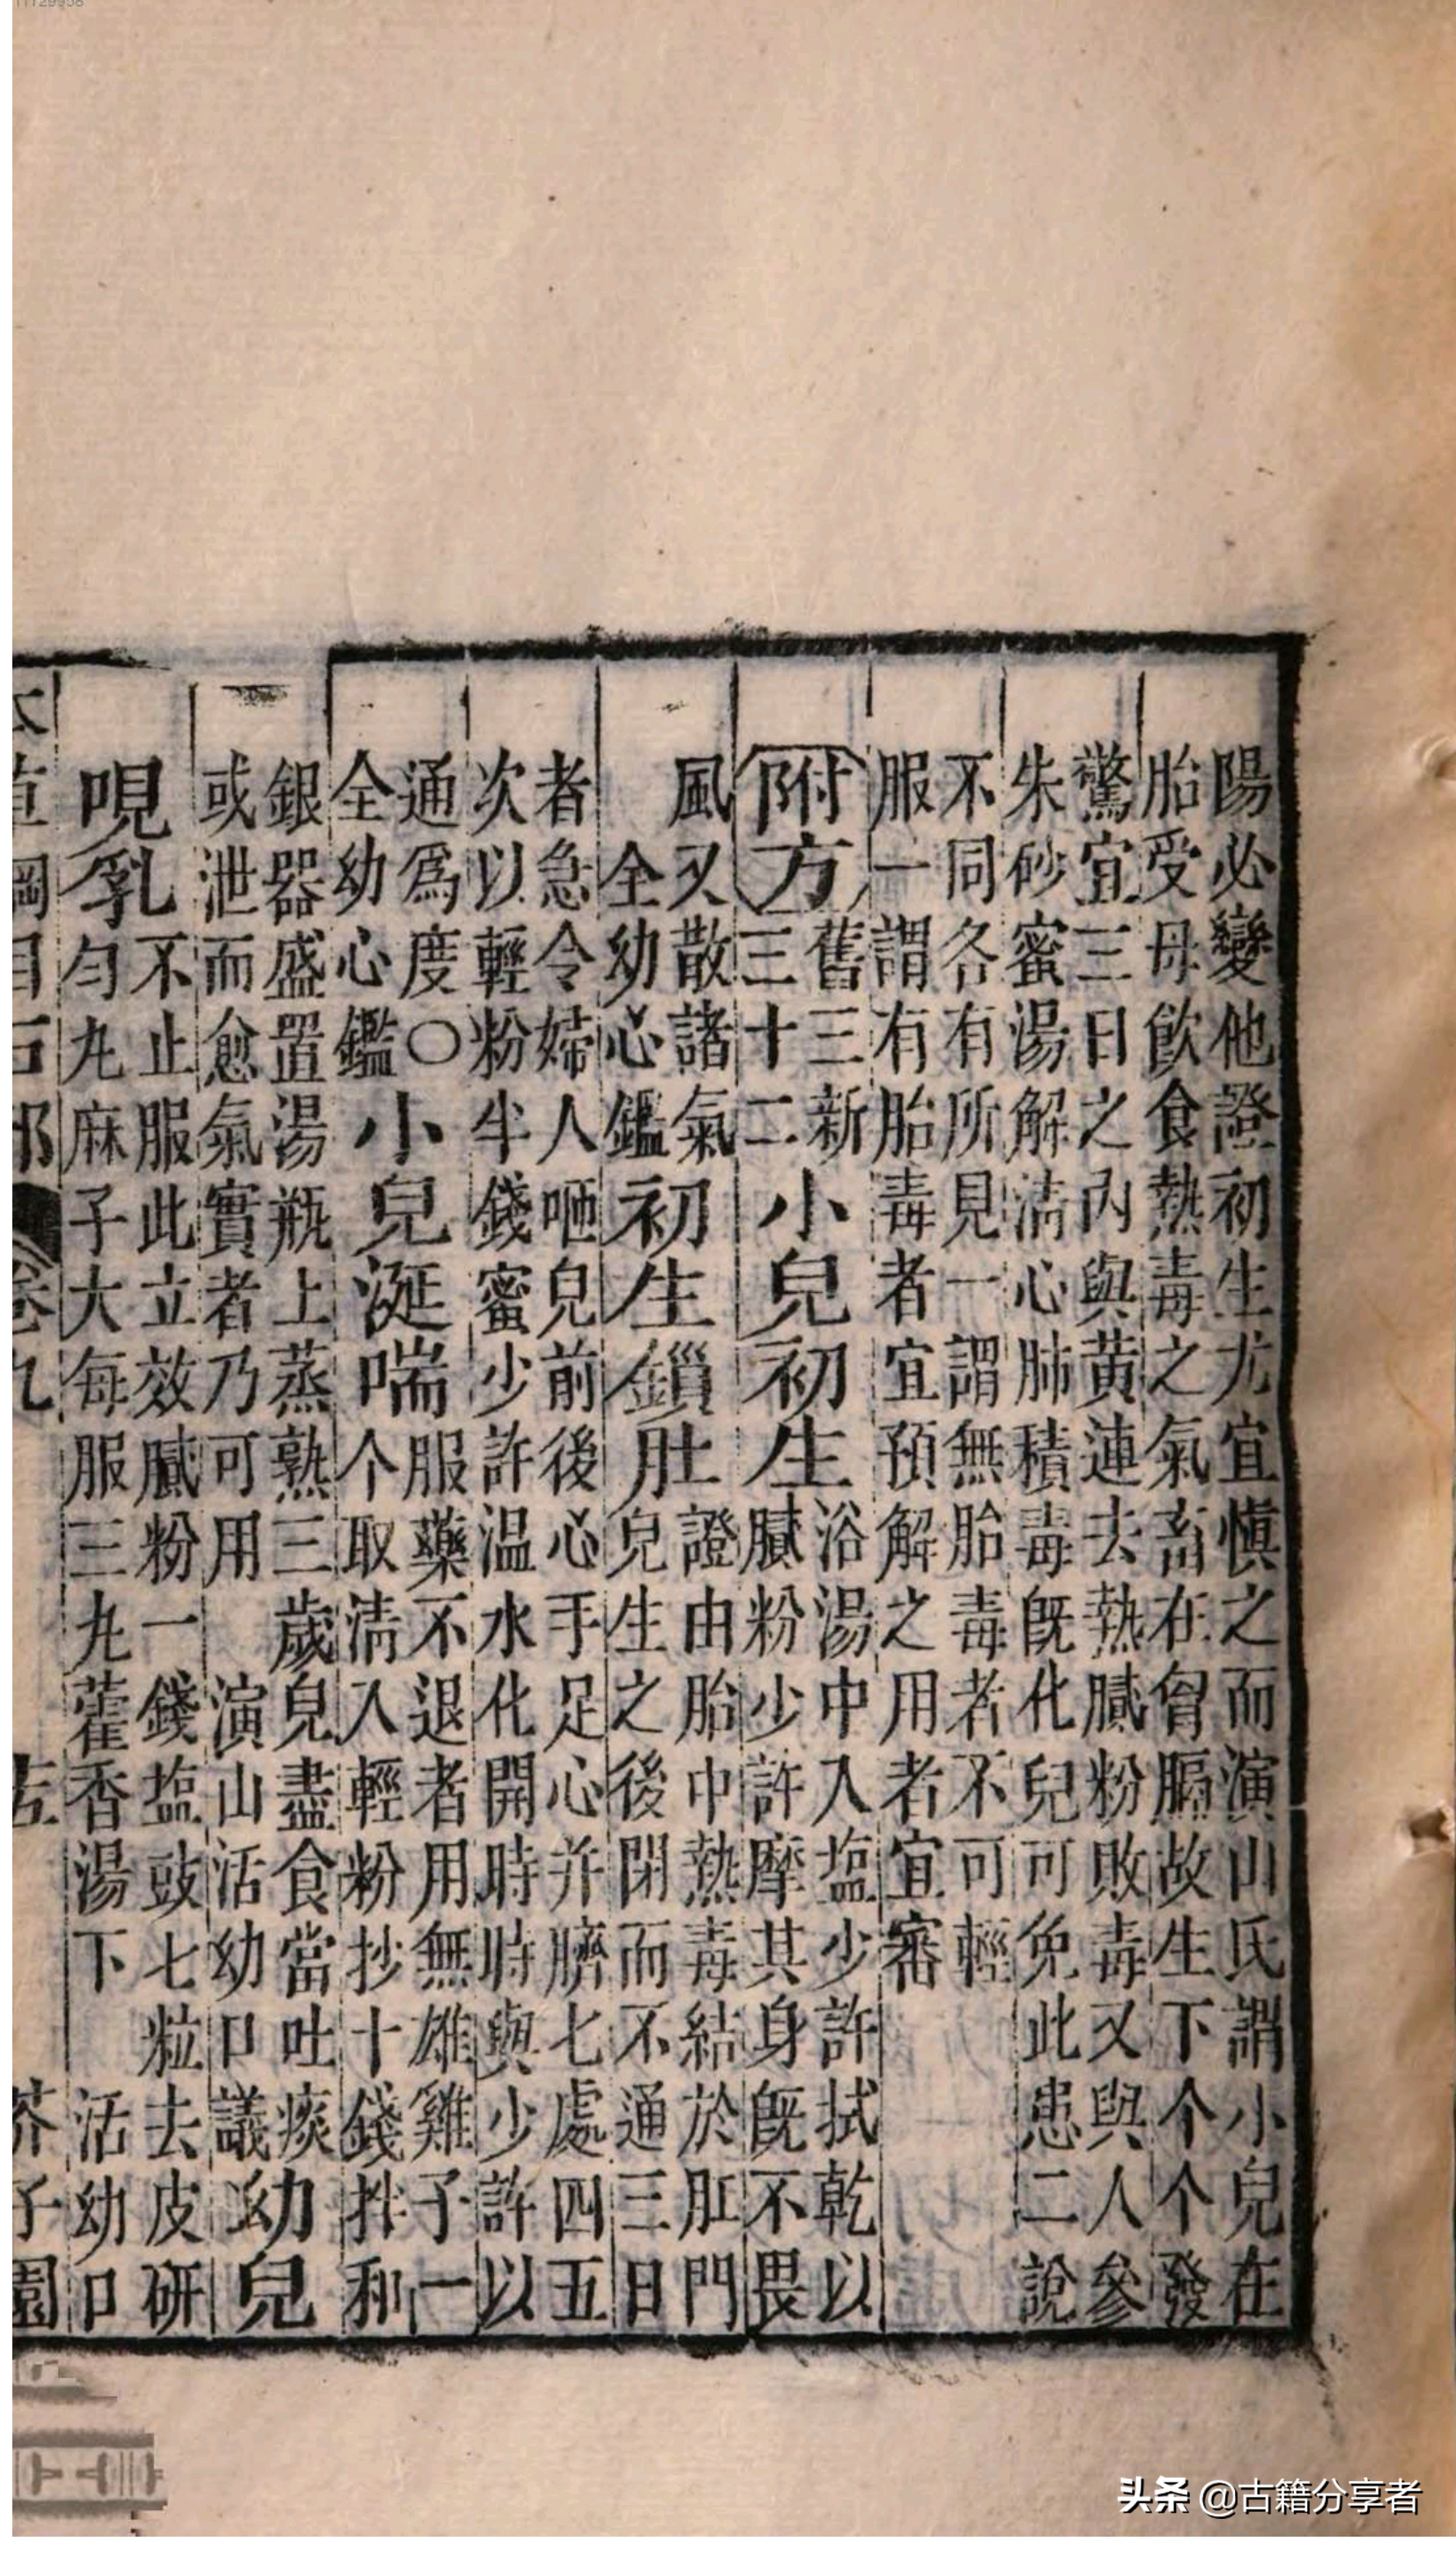 陽必變他證初生尤宜慎之而演山氏謂小兒在
胎受母飲食熱毒之氣畜在胷膈故生下个个發
驚宜三日之內與黃連去熱膩粉敗毒又與人參
朱砂蜜湯解淸心肺積毒旣化兒可免此患二說
不同各有所見一謂無胎毒者不可輕
服一謂有胎毒者宜預解之用者宜審
附方
舊三新
三十二
小兒初生
浴湯中入塩少許拭乾以
膩粉少許摩其身旣不畏
風又散諸氣
全幼心鑑
初生鎻肚
證由胎中熱毒結於肛門
兒生之後閉而不通三日
者急令婦人咂兒前後心手足心并臍七處四五
次以輕粉半錢蜜少許温水化開時時與少許以
通爲度〇
全幼心鑑
小兒涎喘
服藥不退者用無雄雞子一
个取淸入輕粉抄十錢拌和
銀器盛置湯瓶上蒸熟三歲兒盡食當吐痰
或泄而愈氣實者乃可用 演山活幼口議
幼兒
哯乳
不止服此立效膩粉一錢塩豉七粒去皮研
勻丸麻子大每服三丸藿香湯下 活幼口
本草綱目石部 卷九 芥子園
头条 @古籍分享者